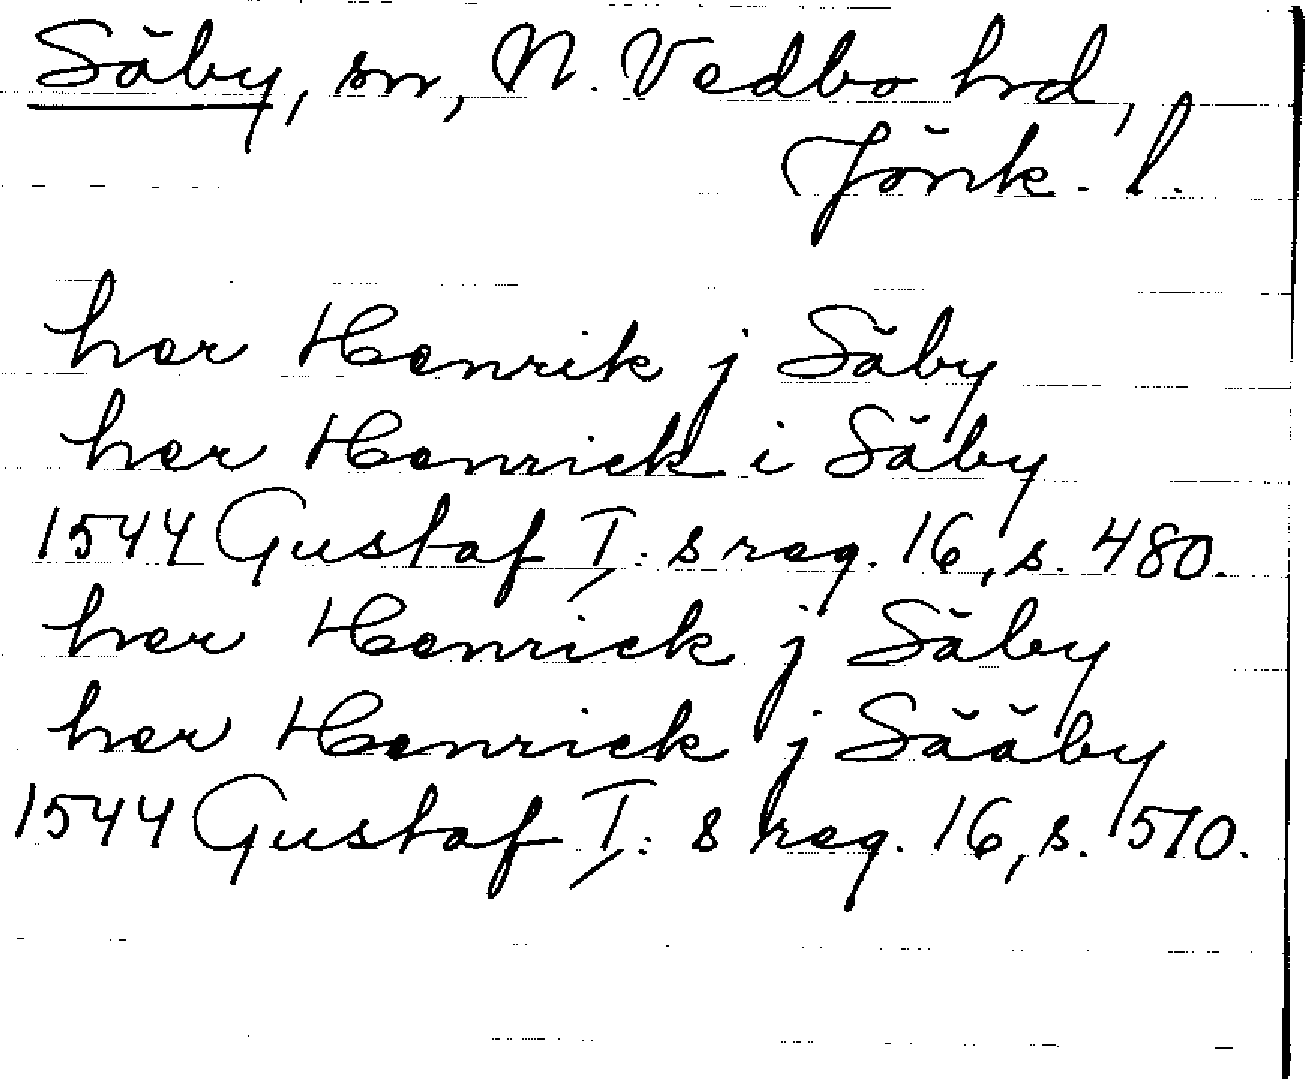 Säby, sn, N. Vedbo hrd,
Jönk. l.
her Henrik j Säby
her Henrick i Säby
1544 Gustaf I:s reg. 16, s. 480.
her Henrick j Säby
her Henrick j Sääby
1544 Gustaf I:s reg. 16, s. 510.